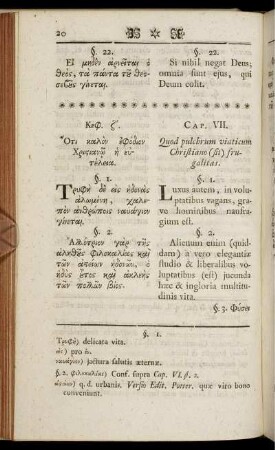 20
§. 22.
Εἰ μηδὲν ἀρνεῖται ὁ
θεὸς, τὰ πάντα τοῦ θεο-
σεβοῦς γίνεται.
Κεφ. ζ.
Ὅτι καλὸν ἐφόδιον
Χριστιανῷ ἡ εὐ-
τέλεια.
§. 1.
Τρυφὴ δὲ εἰς ἡδονὰς
ἁλωμένη, χαλε-
πὸν ἀνθρώποις ναυάγιον
γίνεται.
§. 2.
Ἀλλότριον γὰρ τῆς
ἀληθοῦς φιλοκαλίας καὶ
τῶν ἀστείων ἡδονῶν, ὁ
ἡδὺς οὗτος καὶ ἀκλεὴς
τῶν πολλῶν βίος.
§. 22.
Si nihil negat Deus;
omnia sunt ejus, qui
Deum colit.
CAP. VII.
Quod pulchrum viaticum
Christiano (sit) fru-
galitas.
§. 1.
Luxus autem, in volu-
ptatibus vagans, gra-
ve hominibus naufra-
gium est.
§. 2.
Alienum enim (quid-
dam) a vero elegantiæ
studio & liberalibus vo-
luptatibus (est) jucunda
hæc & ingloria multitu-
dinis vita.
§. 3. Φύσει
§. 1.
Τρυφὴ) delicata vita.
εἰς) pro ἐν.
ναυάγιον) jactura salutis æternæ.
§. 2. φιλοκαλίας) Conf. supra Cap. VI. §. 2.
ἀστείων) q. d. urbanis. Versio Edit. Potter. quæ viro bono
conveniunt.